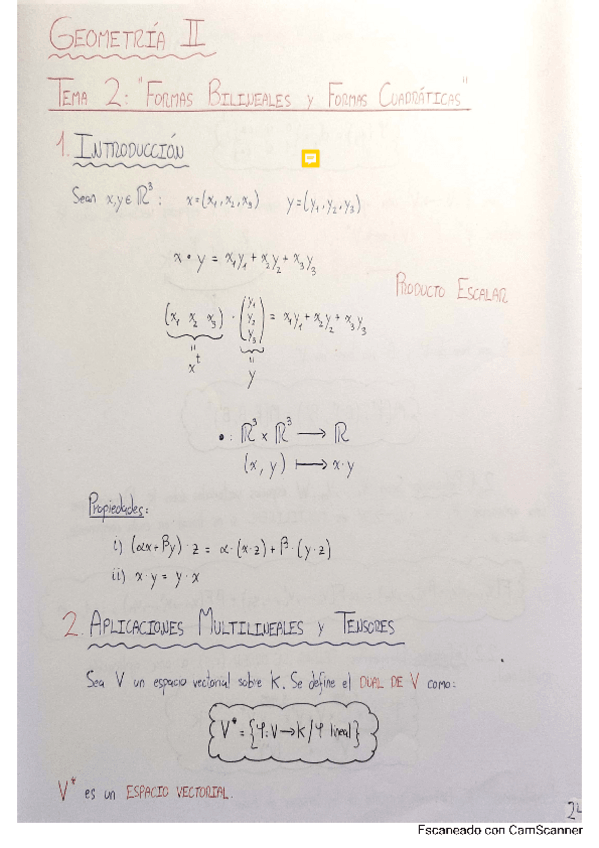 GEOMETRÍA II
TEMA 2: "FORMAS BILINEALES Y FORMAS CUADRÁTICAS"
1. INTRODUCCIÓN
Sean x,y ∈ ℝ³: x=(x₁,x₂,x₃) y=(y₁,y₂,y₃)
x • y = x₁y₁ + x₂y₂ + x₃y₃
PRODUCTO ESCALAR
(x₁ x₂ x₃) · (y₁ y₂ y₃) = x₁y₁ + x₂y₂ + x₃y₃
" "
xᵗ y
• : ℝ³ × ℝ³ ⟶ ℝ
(x, y) ⟼ x·y
Propiedades:
i) (αx + βy) · z = α·(x·z) + β·(y·z)
ii) x·y = y·x
2. APLICACIONES MULTILINEALES Y TENSORES
Sea V un espacio vectorial sobre K. Se define el DUAL DE V como:
V* = {φ: V → K / φ lineal}
V* es un ESPACIO VECTORIAL.
Escaneado con CamScanner